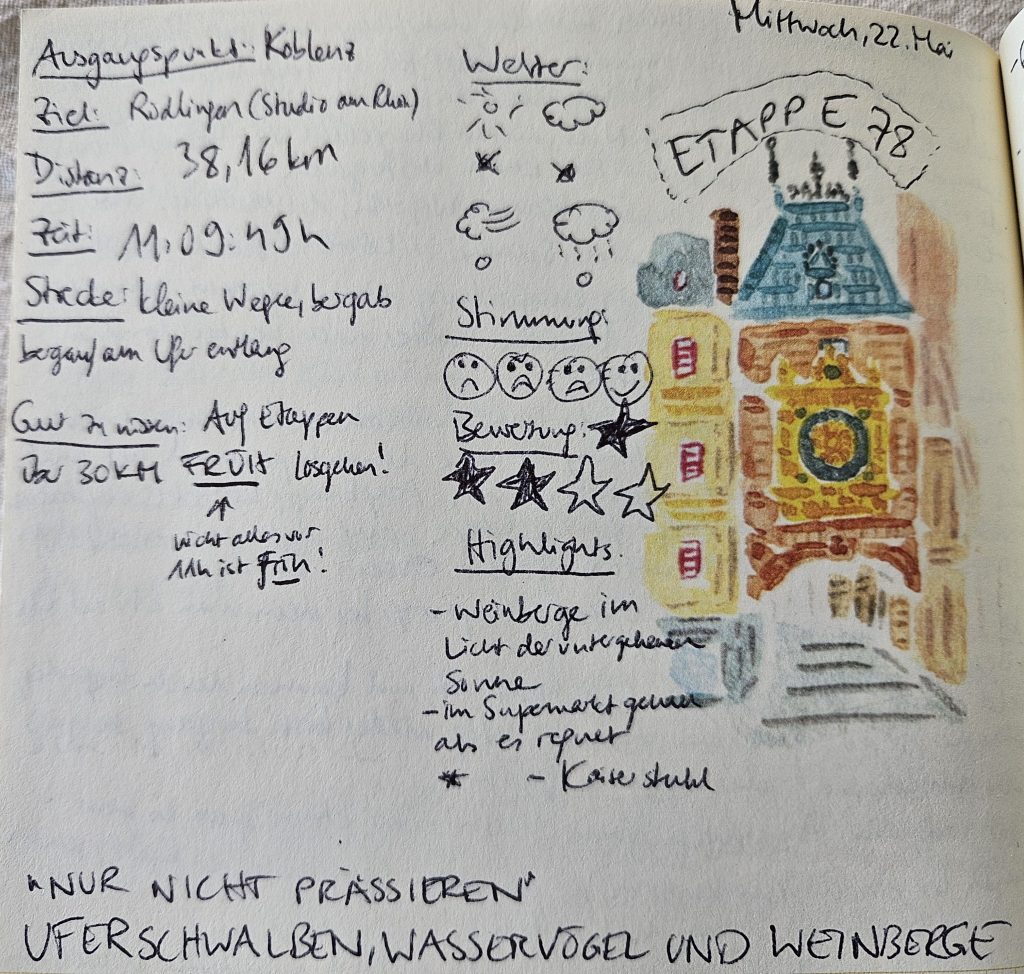 Mittwoch, 22. Mai
ETAPPE 78
Ausgangspunkt: Koblenz
Ziel: Rüdlingen (Studio am Rhein)
Distanz: 38,16 km
Zeit: 11:09:49h
Strecke: kleine Wege, bergab
bergauf am Ufer entlang
Gut zu wissen: Auf Etappen
über 30KM FRÜH losgehen!
nicht alles vor
11h ist früh!
Wetter:
Stimmung:
Bewertung:
Highlights:
- Weinberge im
Licht der untergehenden
Sonne
- im Supermarkt genau
als es regnet
- Kaiserstuhl
"NUR NICHT PRÄSSIEREN"
UFERSCHWALBEN, WASSERVÖGEL UND WEINBERGE